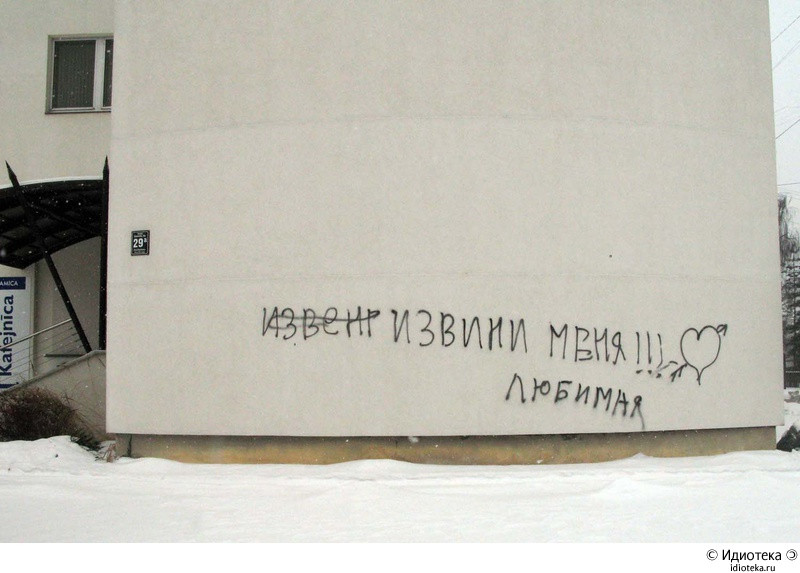 29
AMICA
Kafejnīca
ИЗВЕНГ ИЗВИНИ МЕНЯ!!!
ЛЮБИМАЯ
© Идиотека
idioteka.ru